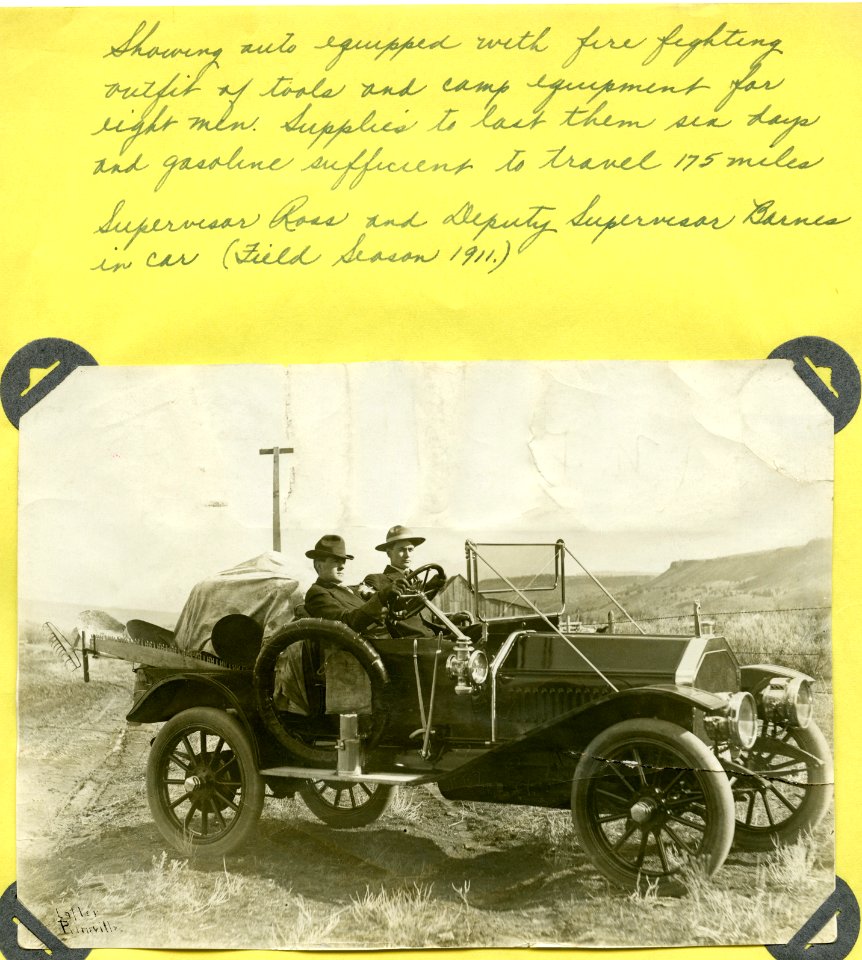 Showing auto equipped with fire fighting
outfit of tools and camp equipment for
eight men. Supplies to last them six days
and gasoline sufficient to travel 175 miles
Supervisor Ross and Deputy Supervisor Barnes
in car (Field Season 1911.)
Prineville